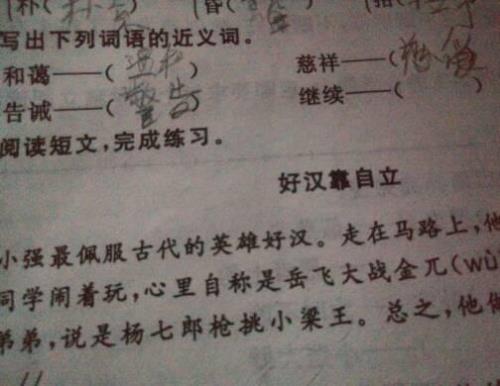 朴(朴素 昏( 拍(
写出下列词语的近义词。
和蔼——(温和) 慈祥——(慈爱
告诫——(警告) 继续——(
阅读短文,完成练习。
好汉靠自立
小强最佩服古代的英雄好汉。走在马路上,他
同学闹着玩,心里自称是岳飞大战金兀(wù
弟弟,说是杨七郎枪挑小梁王。总之,他做